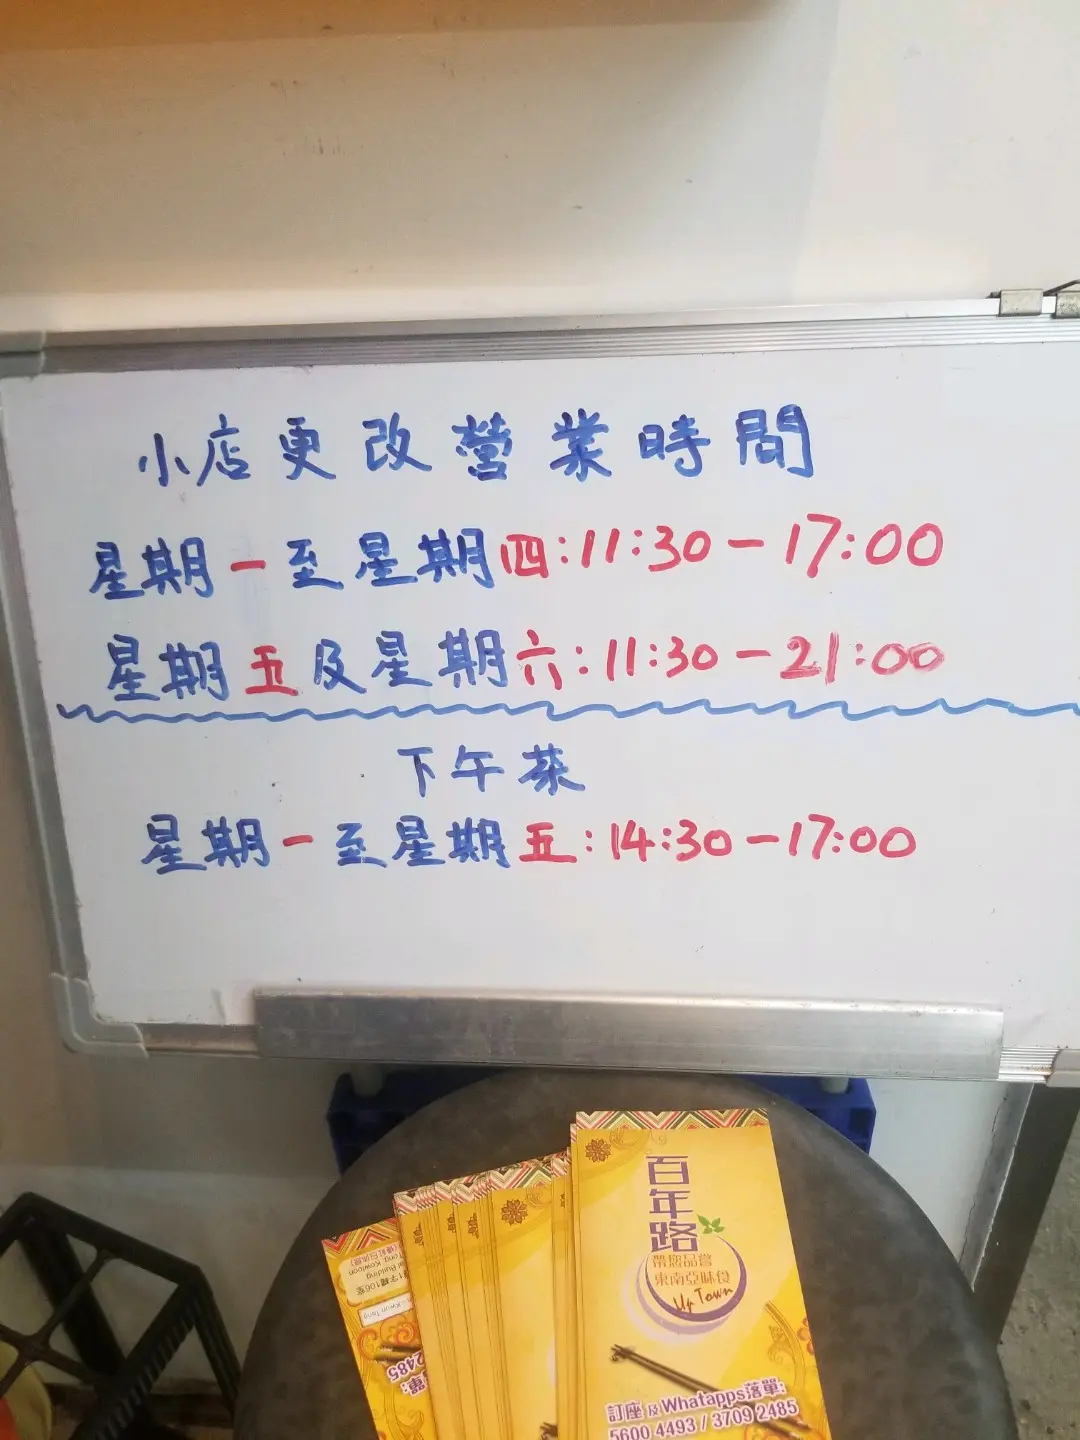 小店更改營業時間
星期一至星期四:11:30-17:00
星期五及星期六:11:30-21:00
下午茶
星期一至星期五:14:30-17:00
百年路
帶您品嘗
東南亞味食
Up Town
訂座及Whatapps落單:
5600 4493 / 3709 2485
Kwun Tong
Building
ong, Kowloon
2485